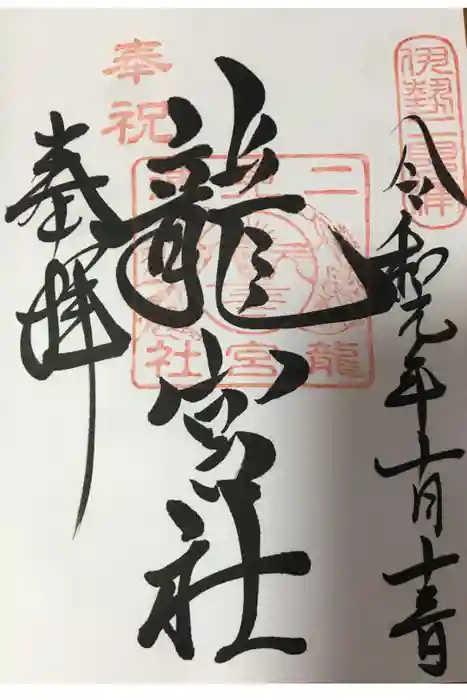 伊勢二見浦
令和元年十月十三日
龍宮社
二見
龍宮社
奉祝
奉拝